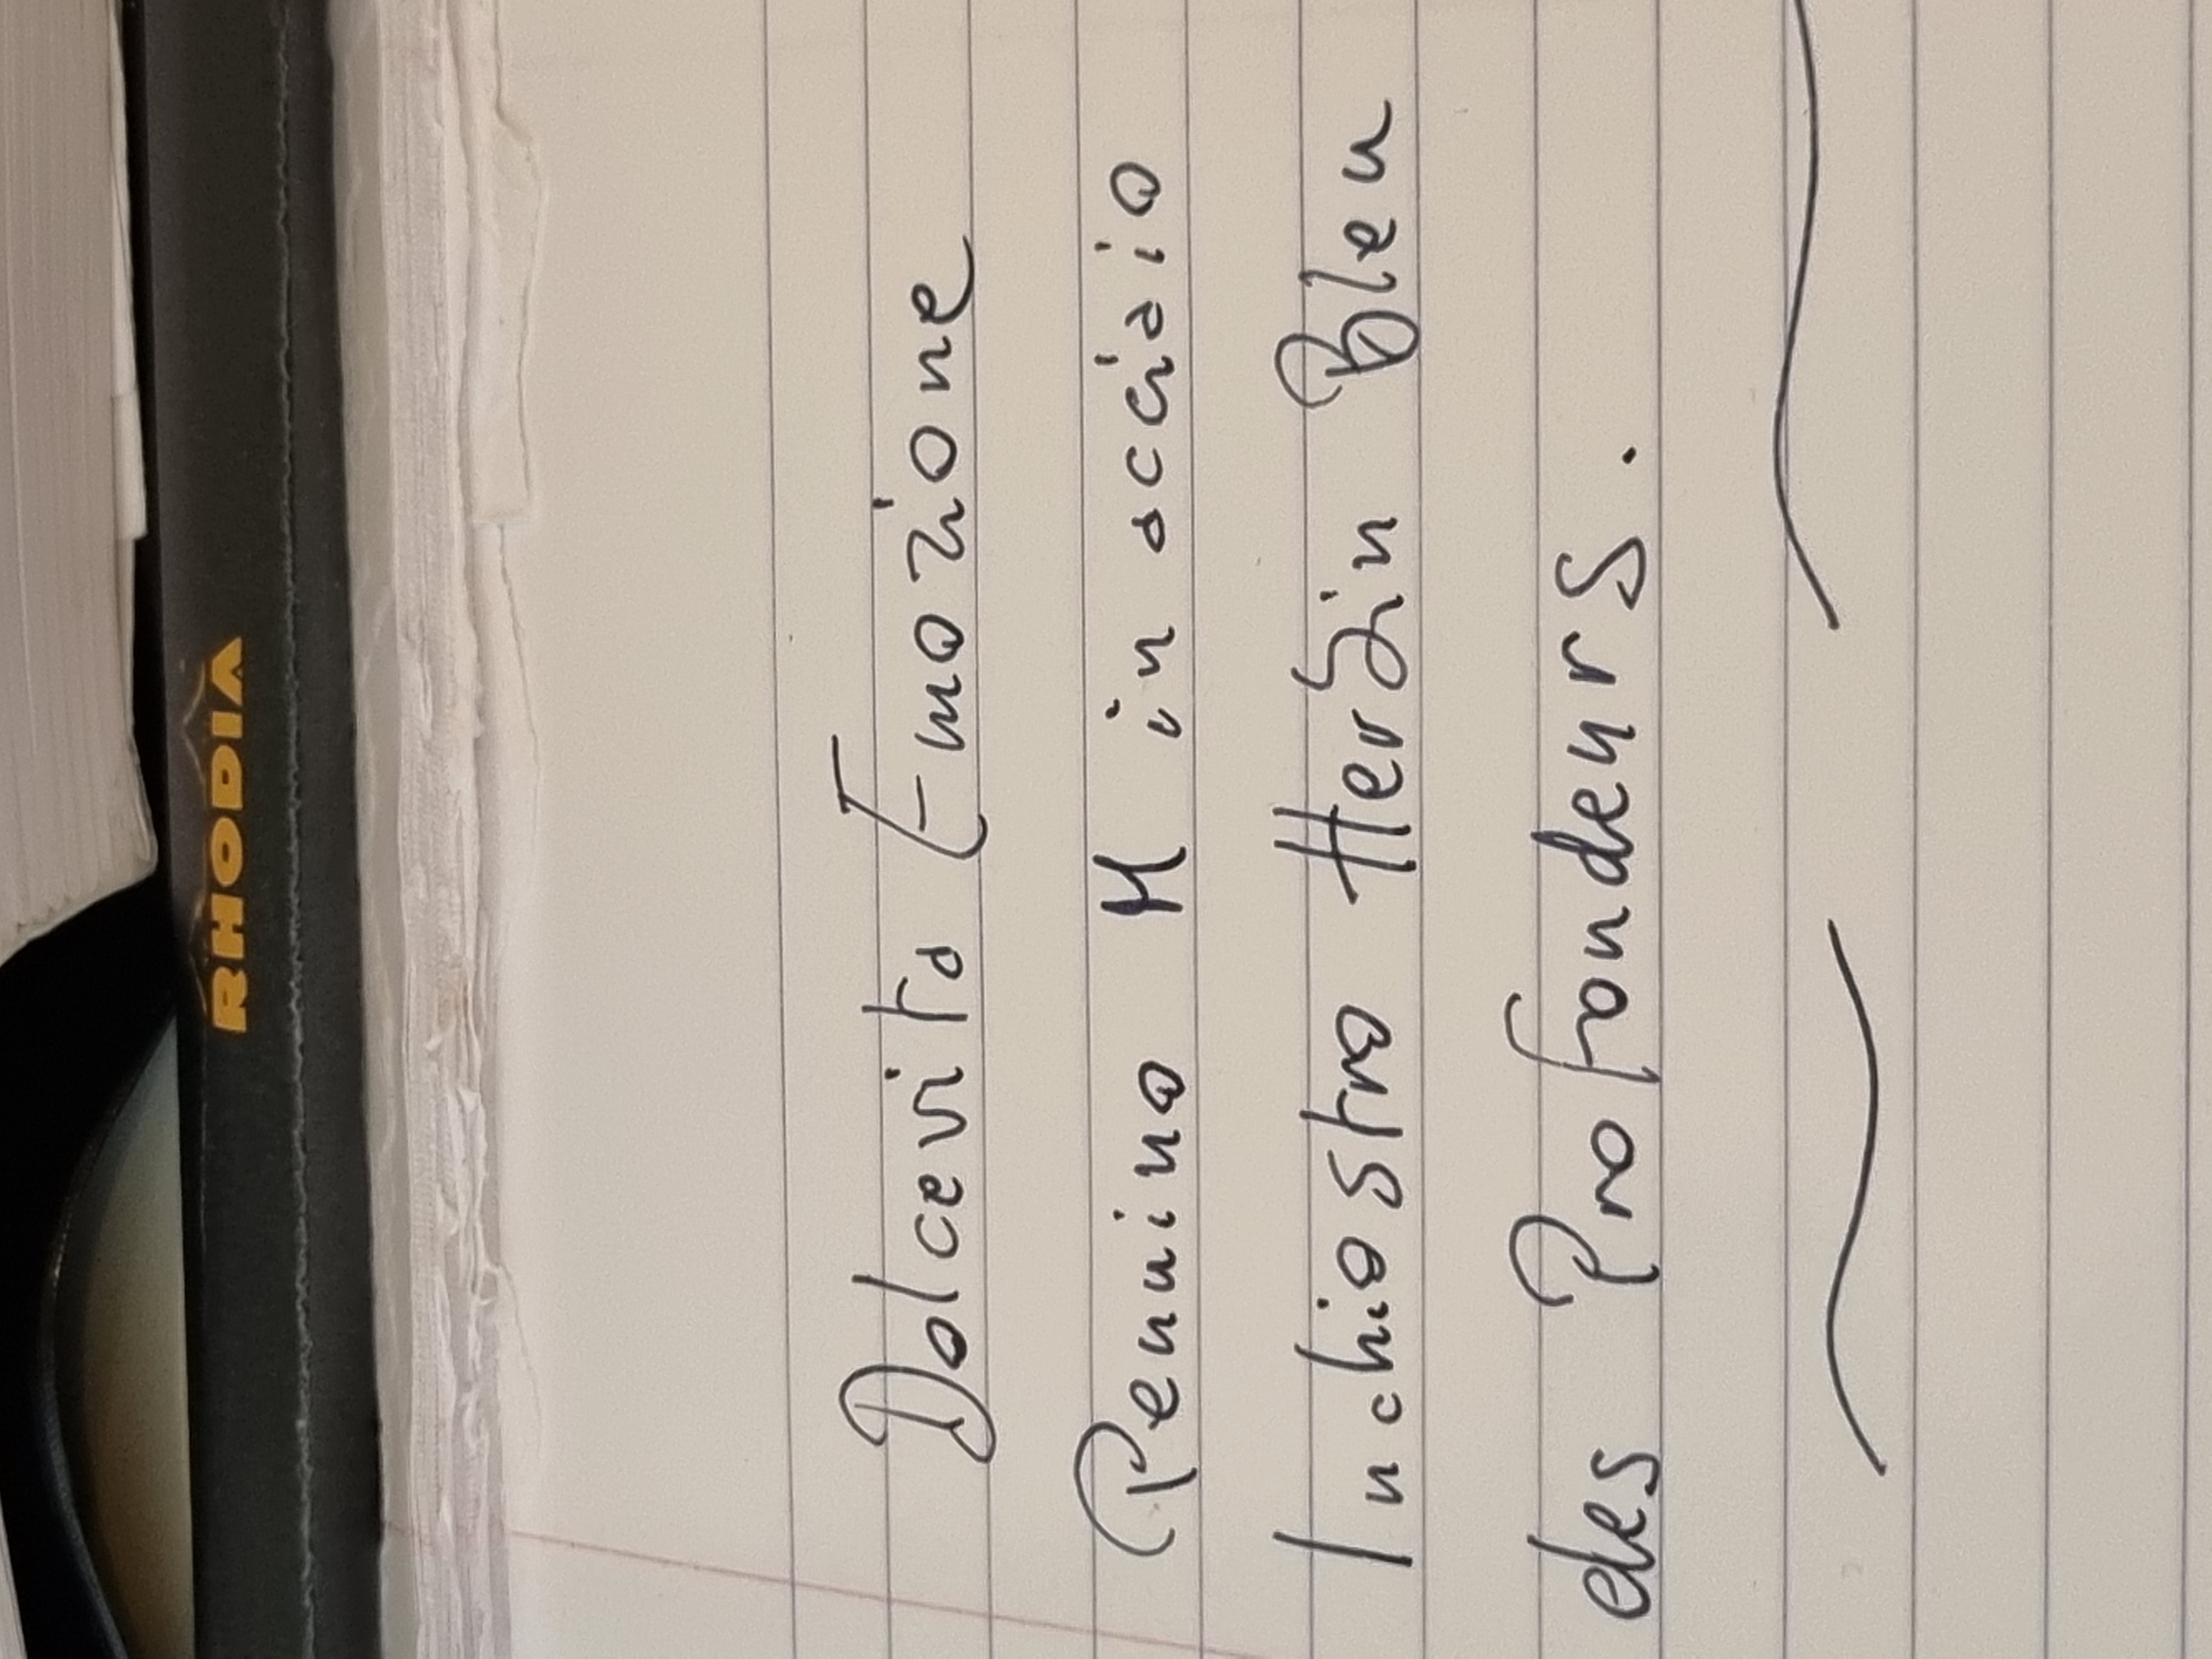 RHODIA
Dolcevita Emozione
Pennino M in acciaio
Inchiostro Herbin Bleu
des Profondeurs.